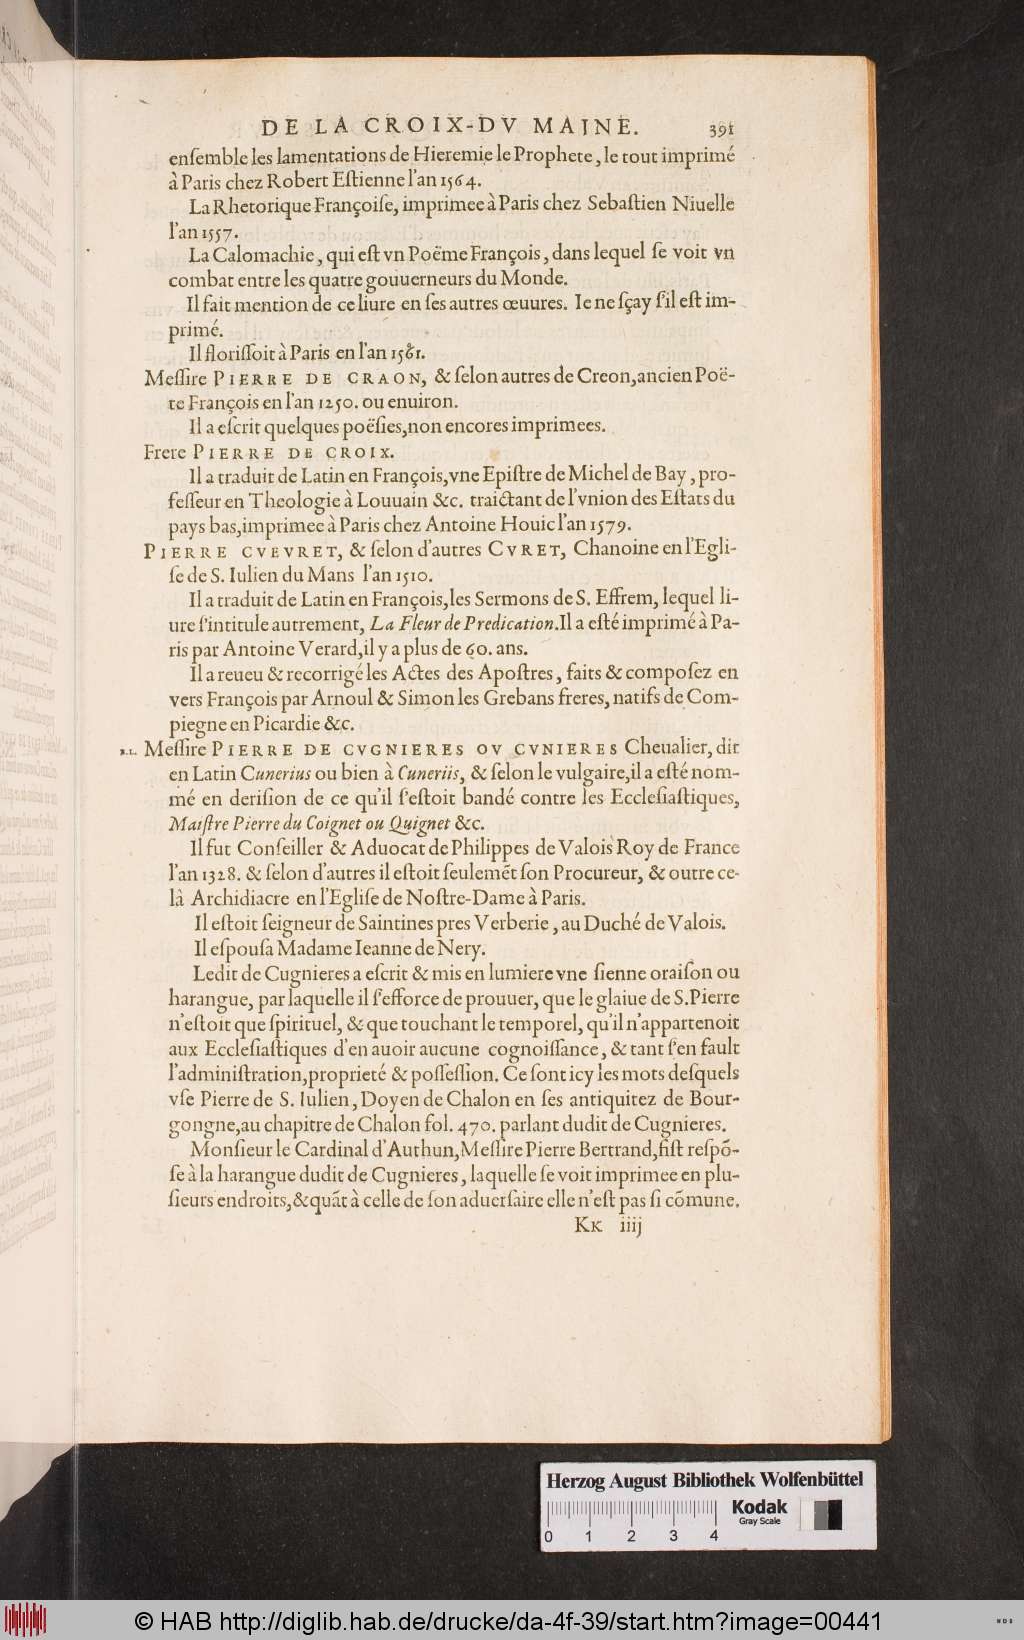 DE LA CROIX-DV MAINE. 391
enſemble les lamentations de Hieremie le Prophete, le tout imprimé
à Paris chez Robert Eſtienne l'an 1564.
La Rhetorique Françoiſe, imprimee à Paris chez Sebaſtien Niuelle
l'an 1557.
La Calomachie, qui eſt vn Poëme François, dans lequel ſe voit vn
combat entre les quatre gouuerneurs du Monde.
Il fait mention de ce liure en ſes autres œuures. Ie ne ſçay s'il eſt im-
primé.
Il floriſſoit à Paris en l'an 1561.
Meſſire PIERRE DE CRAON, & ſelon autres de Creon, ancien Poë-
te François en l'an 1250. ou enuiron.
Il a eſcrit quelques poëſies, non encores imprimees.
Frere PIERRE DE CROIX.
Il a traduit de Latin en François, vne Epiſtre de Michel de Bay, pro-
feſſeur en Theologie à Louuain &c. traictant de l'vnion des Eſtats du
pays bas, imprimee à Paris chez Antoine Houic l'an 1579.
PIERRE CVEVRET, & ſelon d'autres CVRET, Chanoine en l'Egli-
ſe de S. Iulien du Mans l'an 1510.
Il a traduit de Latin en François, les Sermons de S. Effrem, lequel li-
ure ſ'intitule autrement, La Fleur de Predication. Il a eſté imprimé à Pa-
ris par Antoine Verard, il y a plus de 60. ans.
Il a reueu & recorrigé les Actes des Apoſtres, faits & compoſez en
vers François par Arnoul & Simon les Grebans freres, natifs de Com-
piegne en Picardie &c.
Meſſire PIERRE DE CVGNIERES OV CVNIERES Cheualier, dit
en Latin Cunerius ou bien à Cuneriis, & ſelon le vulgaire, il a eſté nom-
mé en deriſion de ce qu'il ſ'eſtoit bandé contre les Eccleſiaſtiques,
Maiſtre Pierre du Coignet ou Quignet &c.
Il fut Conſeiller & Aduocat de Philippes de Valois Roy de France
l'an 1328. & ſelon d'autres il eſtoit ſeulemẽt ſon Procureur, & outre ce-
là Archidiacre en l'Egliſe de Noſtre-Dame à Paris.
Il eſtoit ſeigneur de Saintines pres Verberie, au Duché de Valois.
Il eſpouſa Madame Ieanne de Nery.
Ledit de Cugnieres a eſcrit & mis en lumiere vne ſienne oraiſon ou
harangue, par laquelle il ſ'efforce de prouuer, que le glaiue de S. Pierre
n'eſtoit que ſpirituel, & que touchant le temporel, qu'il n'appartenoit
aux Eccleſiaſtiques d'en auoir aucune cognoiſſance, & tant ſ'en fault
l'adminiſtration, proprieté & poſſeſſion. Ce ſont icy les mots deſquels
vſe Pierre de S. Iulien, Doyen de Chalon en ſes antiquitez de Bour-
gongne, au chapitre de Chalon fol. 470. parlant dudit de Cugnieres.
Monſieur le Cardinal d'Authun, Meſſire Pierre Bertrand, fiſt reſpõ-
ſe à la harangue dudit de Cugnieres, laquelle ſe voit imprimee en plu-
ſieurs endroits, & quãt à celle de ſon aduerſaire elle n'eſt pas ſi cõmune.
KK iiij
Herzog August Bibliothek Wolfenbüttel
Kodak
Gray Scale
0 1 2 3 4
© HAB http://diglib.hab.de/drucke/da-4f-39/start.htm?image=00441